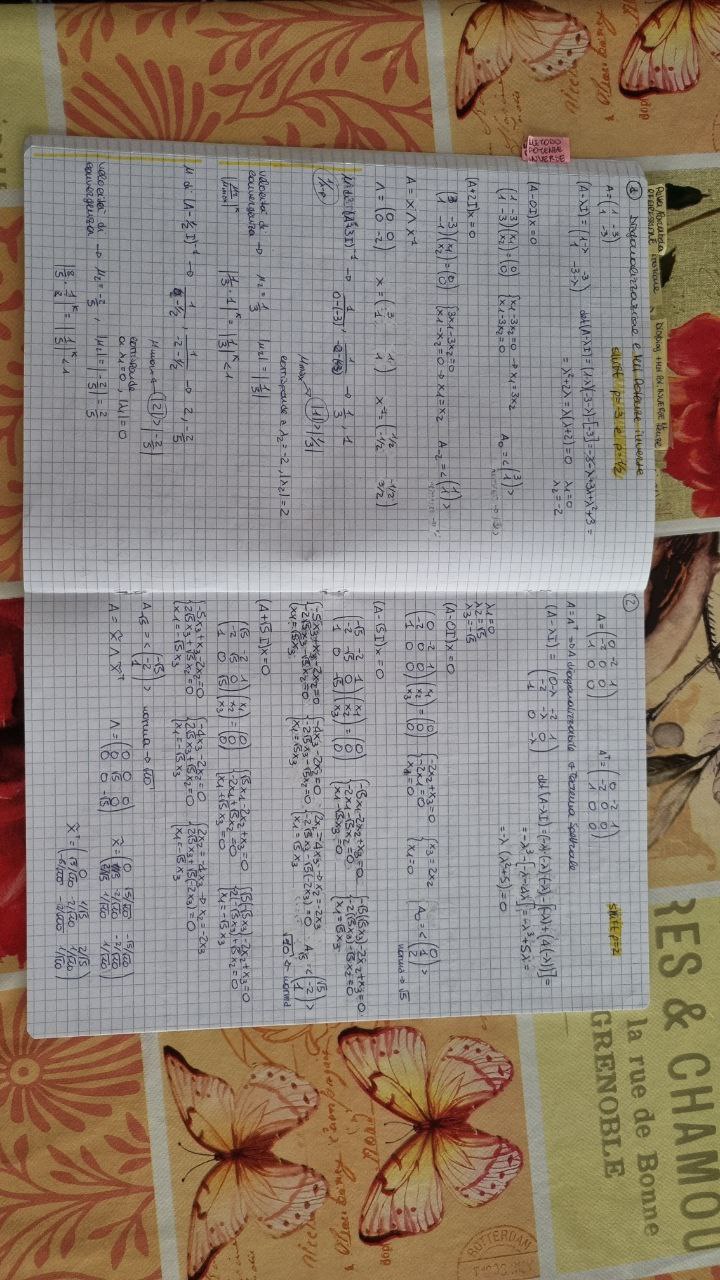 ① Diagonalizzazione e Potenze inverse
shift p=-3 e p=1/2
A=(1 -3; 1 -3)
(A-λI)=(1-λ -3; 1 -3-λ) det(A-λI)=(1-λ)(-3-λ)-[-3]=-3-λ+3λ+λ²+3=
=λ²+2λ=λ(λ+2)=0 λ1=0
λ2=-2
(A-0I)x=0
(1 -3; 1 -3)(x1; x2)=(0; 0) {x1-3x2=0 → x1=3x2; x1-3x2=0 A0=<(3; 1)>
(A+2I)x=0
(3 -3; 1 -1)(x1; x2)=(0; 0) {3x1-3x2=0; x1-x2=0 → x1=x2 A-2=<(1; 1)>
A=XΛX⁻¹
Λ=(0 0; 0 -2) X=(3 1; 1 1) X⁻¹=(1/2 -1/2; -1/2 3/2)
μ di (A+3I)⁻¹ → 1/0-(-3), 1/-2-(-3) → 1/3, 1
|1|>|1/3|
μmax
corrisponde a λ2=-2, |λ2|=2
velocità di convergenza → μ2=1/3 |μ2|=|1/3|
|μ2/μmax|ᴷ |1/3·1|ᴷ=|1/3|ᴷ<1
μ di (A-1/2I)⁻¹ → 1/0-1/2, 1/-2-1/2 → 2, -2/5
μmax ← |2|>|-2/5|
corrisponde
a λ1=0, |λ1|=0
velocità di convergenza → μ2=-2/5, |μ2|=|-2/5|=2/5
=|1/5|ᴷ<1
②
shift p=2
A=(0 -2 1; -2 0 0; 1 0 0) Aᵀ=(0 -2 1; -2 0 0; 1 0 0)
A=Aᵀ ⇒ A diagonalizzabile Teorema Spettrale
(A-λI)=(0-λ -2 1; -2 -λ 0; 1 0 -λ) det(A-λI)=(-λ)(-λ)(-λ)-[(-λ)+(4(-λ))]=
=-λ³-[-λ-4λ]=-λ³+5λ=
=-λ(λ²+5)=0
λ1=0
λ2=√5
λ3=-√5
(A-0I)x=0
(0 -2 1; -2 0 0; 1 0 0)(x1; x2; x3)=(0; 0; 0) {-2x2+x3=0; -2x1=0; x1=0 {x3=2x2; x1=0 A0=<(0; 1; 2)>
norma → √5
(A-√5I)x=0
(-√5 -2 1; -2 -√5 0; 1 0 -√5)(x1; x2; x3)=(0; 0; 0) {-√5x1-2x2+x3=0; -2x1-√5x2=0; x1-√5x3=0 {-√5(√5x3)-2x2+x3=0; -2(√5x3)-√5x2=0; x1=√5x3
{-5x3+x3-2x2=0; -2√5x3-√5x2=0; x1=√5x3 {-4x3-2x2=0; -2√5x3-√5x2=0; x1=√5x3 {2x2=-4x3 → x2=-2x3; -2√5x3-√5(-2x3)=0; x1=√5x3 A√5=<(√5; -2; 1)>
√10 ← norma
(A+√5I)x=0
(√5 -2 1; -2 √5 0; 1 0 √5)(x1; x2; x3)=(0; 0; 0) {√5x1-2x2+x3=0; -2x1+√5x2=0; x1+√5x3=0 {√5(-√5x3)-2x2+x3=0; -2(-√5x3)+√5x2=0; x1=-√5x3
{-5x3+x3-2x2=0; 2√5x3+√5x2=0; x1=-√5x3 {-4x3-2x2=0; 2√5x3+√5x2=0; x1=-√5x3 {2x2=-4x3 → x2=-2x3; 2√5x3+√5(-2x3)=0; x1=-√5x3
A-√5=<(-√5; -2; 1)> norma → √10
A=X̃ΛX̃ᵀ Λ=(0 0 0; 0 √5 0; 0 0 -√5) X̃=(0 √5/√10 -√5/√10; 1/√5 -2/√10 -2/√10; 2/√5 1/√10 1/√10)
X̃ᵀ=(0 1/√5 2/√5; √5/√10 -2/√10 1/√10; -√5/√10 -2/√10 1/√10)
METODO
POTENZE
INVERSE
RES & CHAMOU
la rue de Bonne
GRENOBLE